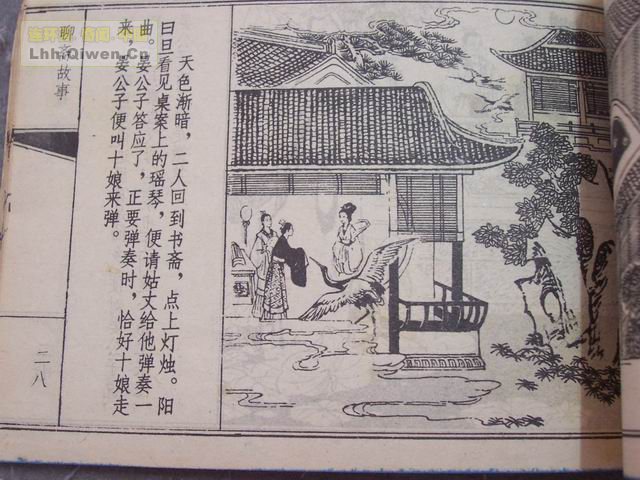 天色渐暗，二人回到书斋，点上灯烛。阳
曰旦看见桌案上的瑶琴，便请姑丈给他弹奏一
曲。晏公子答应了，正要弹奏时，恰好十娘走
来，晏公子便叫十娘来弹。
聊斋故事
二八
连环画
Lhh.Qiwen.Cn